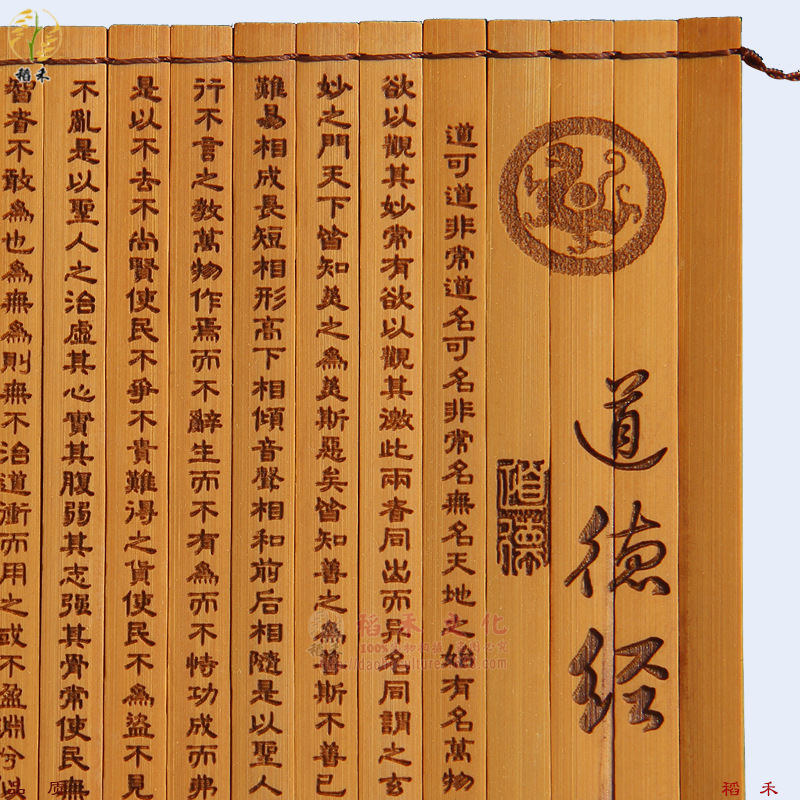 道德经
道德
道可道非常道名可名非常名無名天地之始有名萬物
欲以觀其妙常有欲以觀其激此兩者同出而异名同謂之玄
妙之門天下皆知美之為美斯惡矣皆知善之為善斯不善已
難易相成長短相形高下相傾音聲相和前后相隨是以聖人
行不言之教萬物作焉而不辭生而不有為而不恃功成而弗
是以不去不尚賢使民不爭不貴難得之貨使民不為盜不見
不亂是以聖人之治虛其心實其腹弱其志强其骨常使民無
智者不敢為也為無為則無不治道衝而用之或不盈淵兮似
稻禾
稻禾文化
品質
稻禾